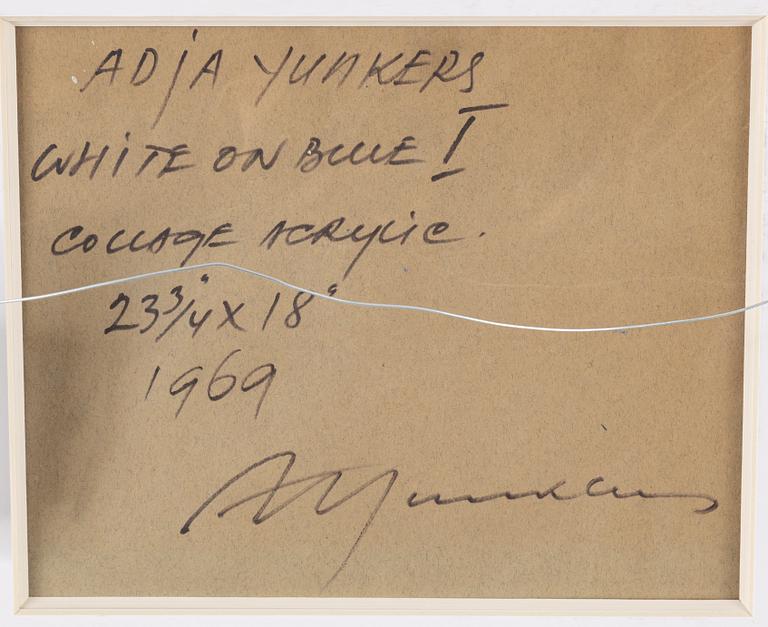 ADjA YUNKERS
WHiTE ON BLUE I
COLLAGE ACRYLiC.
23 3/4" X 18"
1969
AYunkers